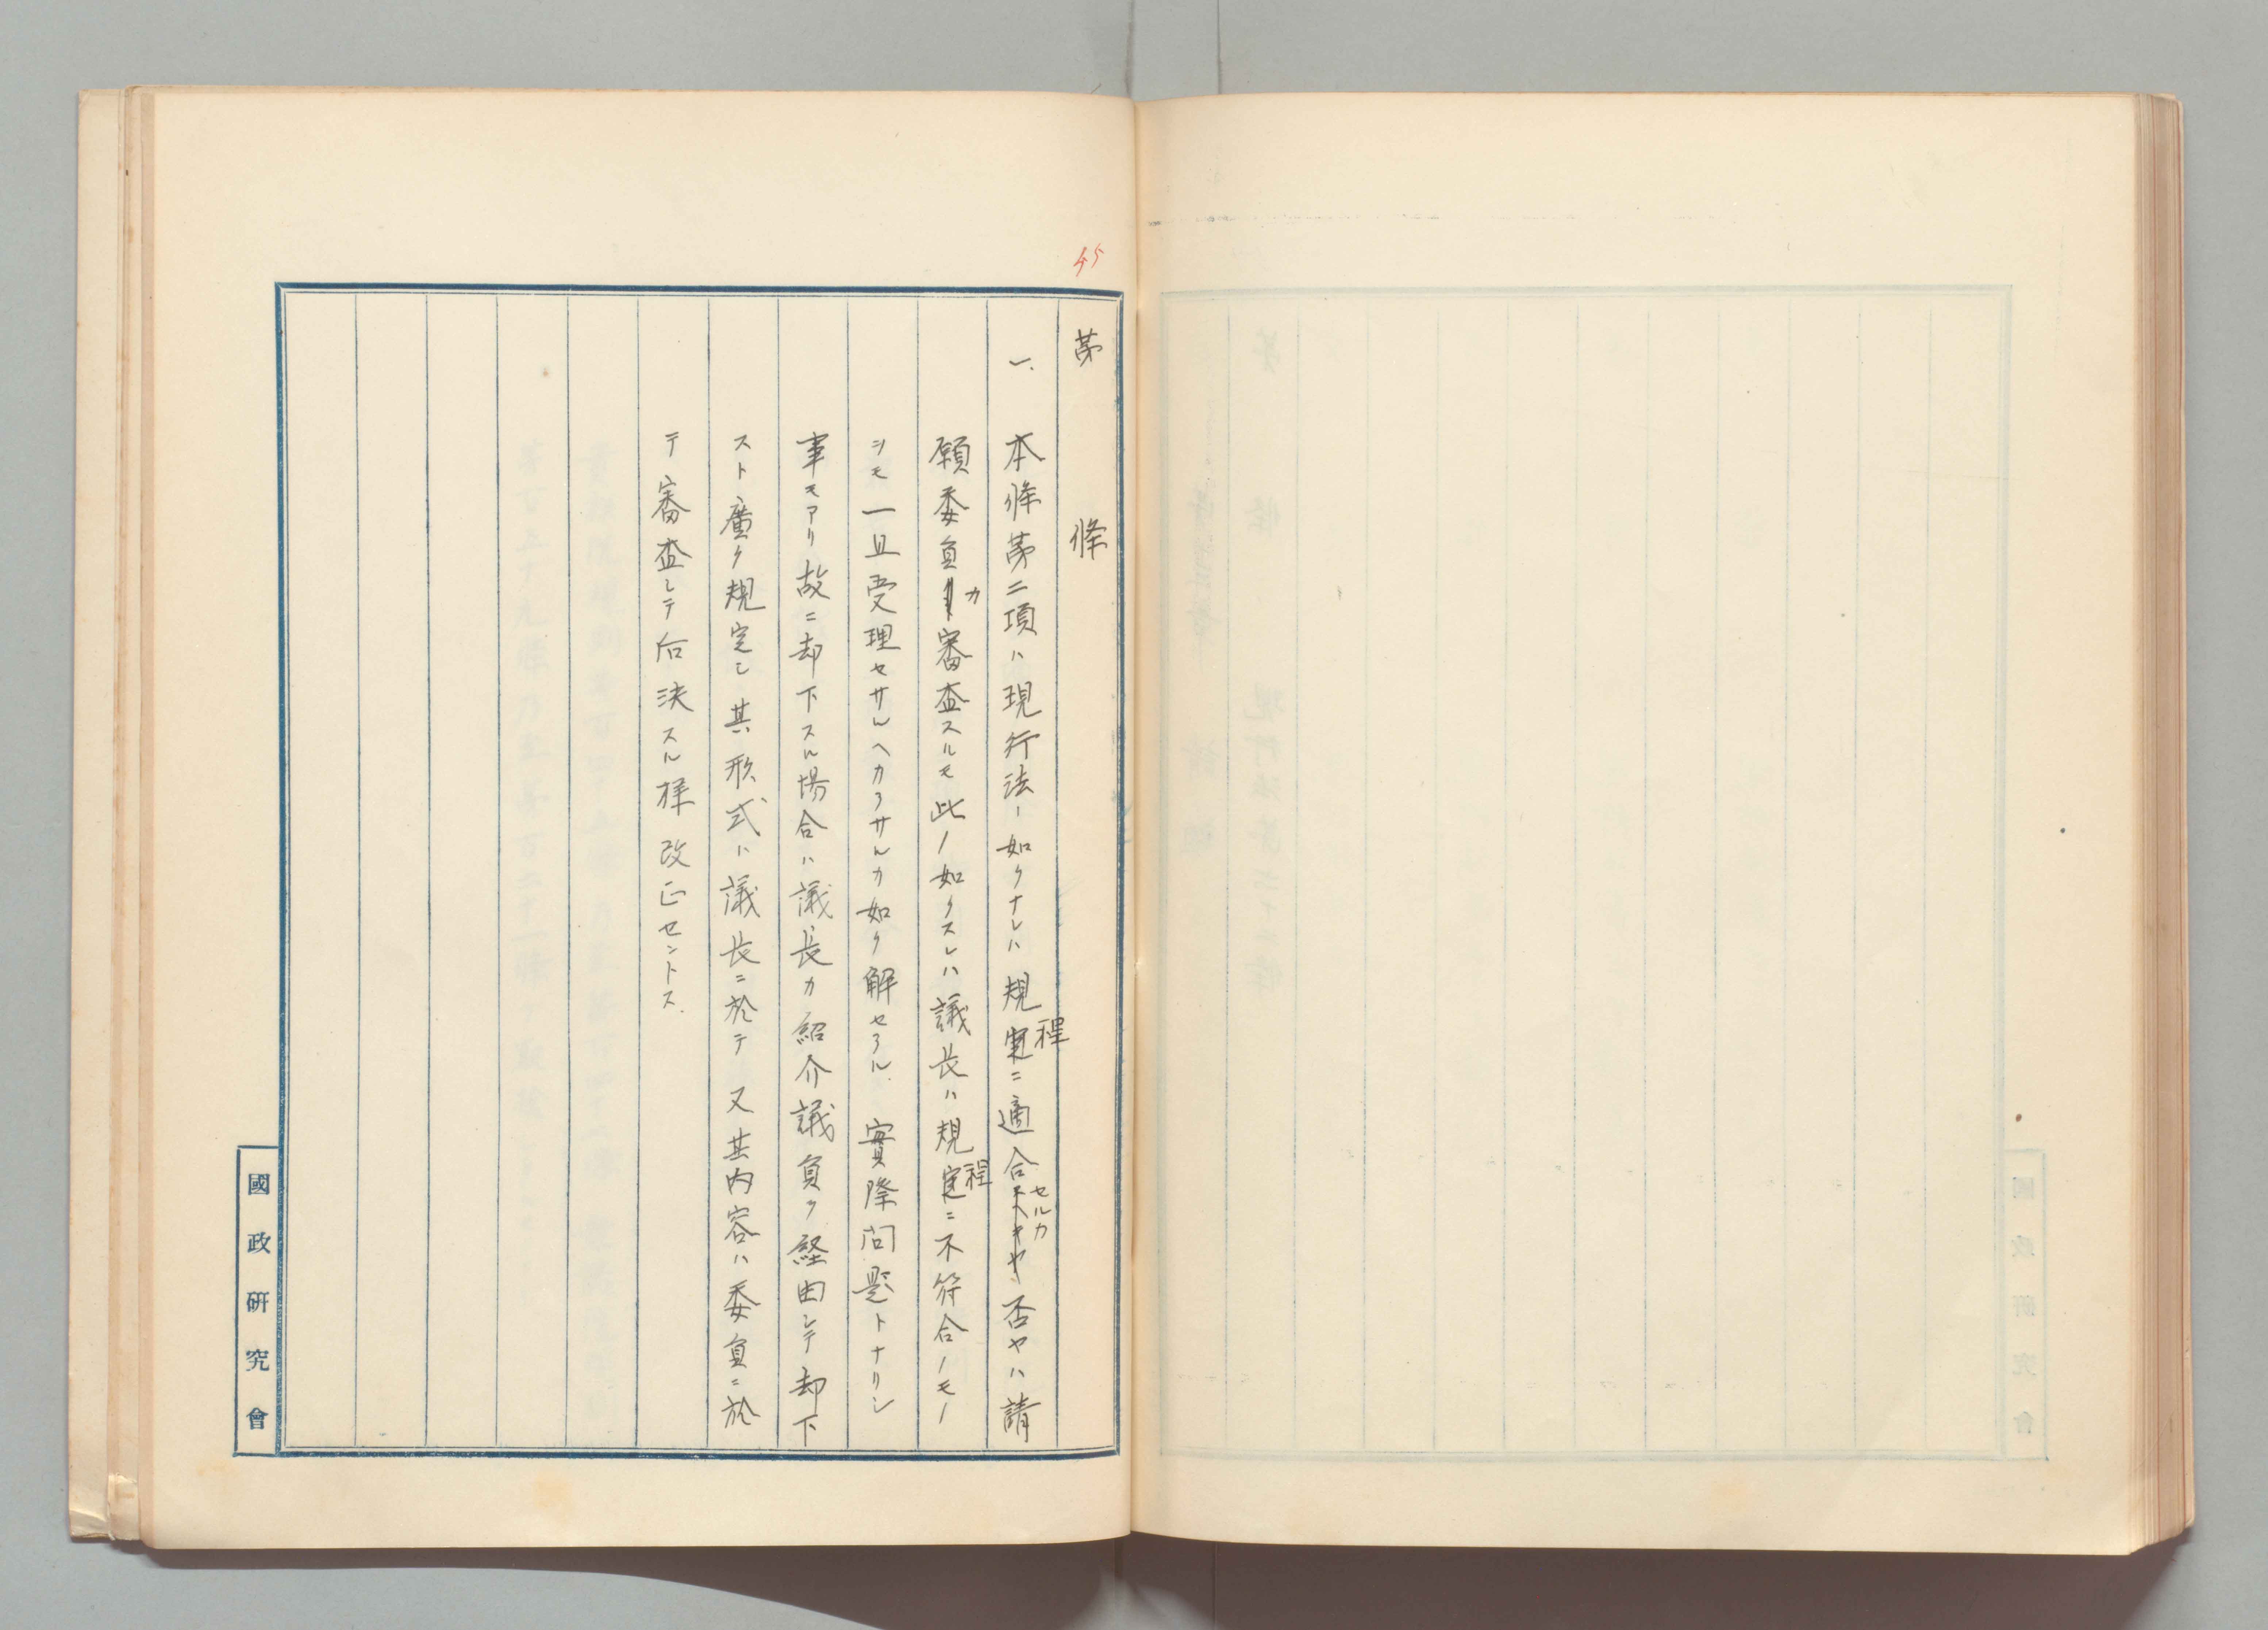 45
第　　條
一、本條第二項ハ現行法ノ如クナレハ規程ニ適合セルカ否ヤハ請
願委員カ審査スルモ此ノ如クスレハ議長ハ規程ニ不符合ノモノ
ヲモ一旦受理セサルヘカラサルカ如ク解セラル、實際問題トナリシ
事モアリ故ニ却下スル場合ハ議長カ紹介議員ヲ経由シテ却下
スト廣ク規定シ其形式ハ議長ニ於テ又其内容ハ委員ニ於
テ審査シテ后決スル様改正セントス、
國政研究會